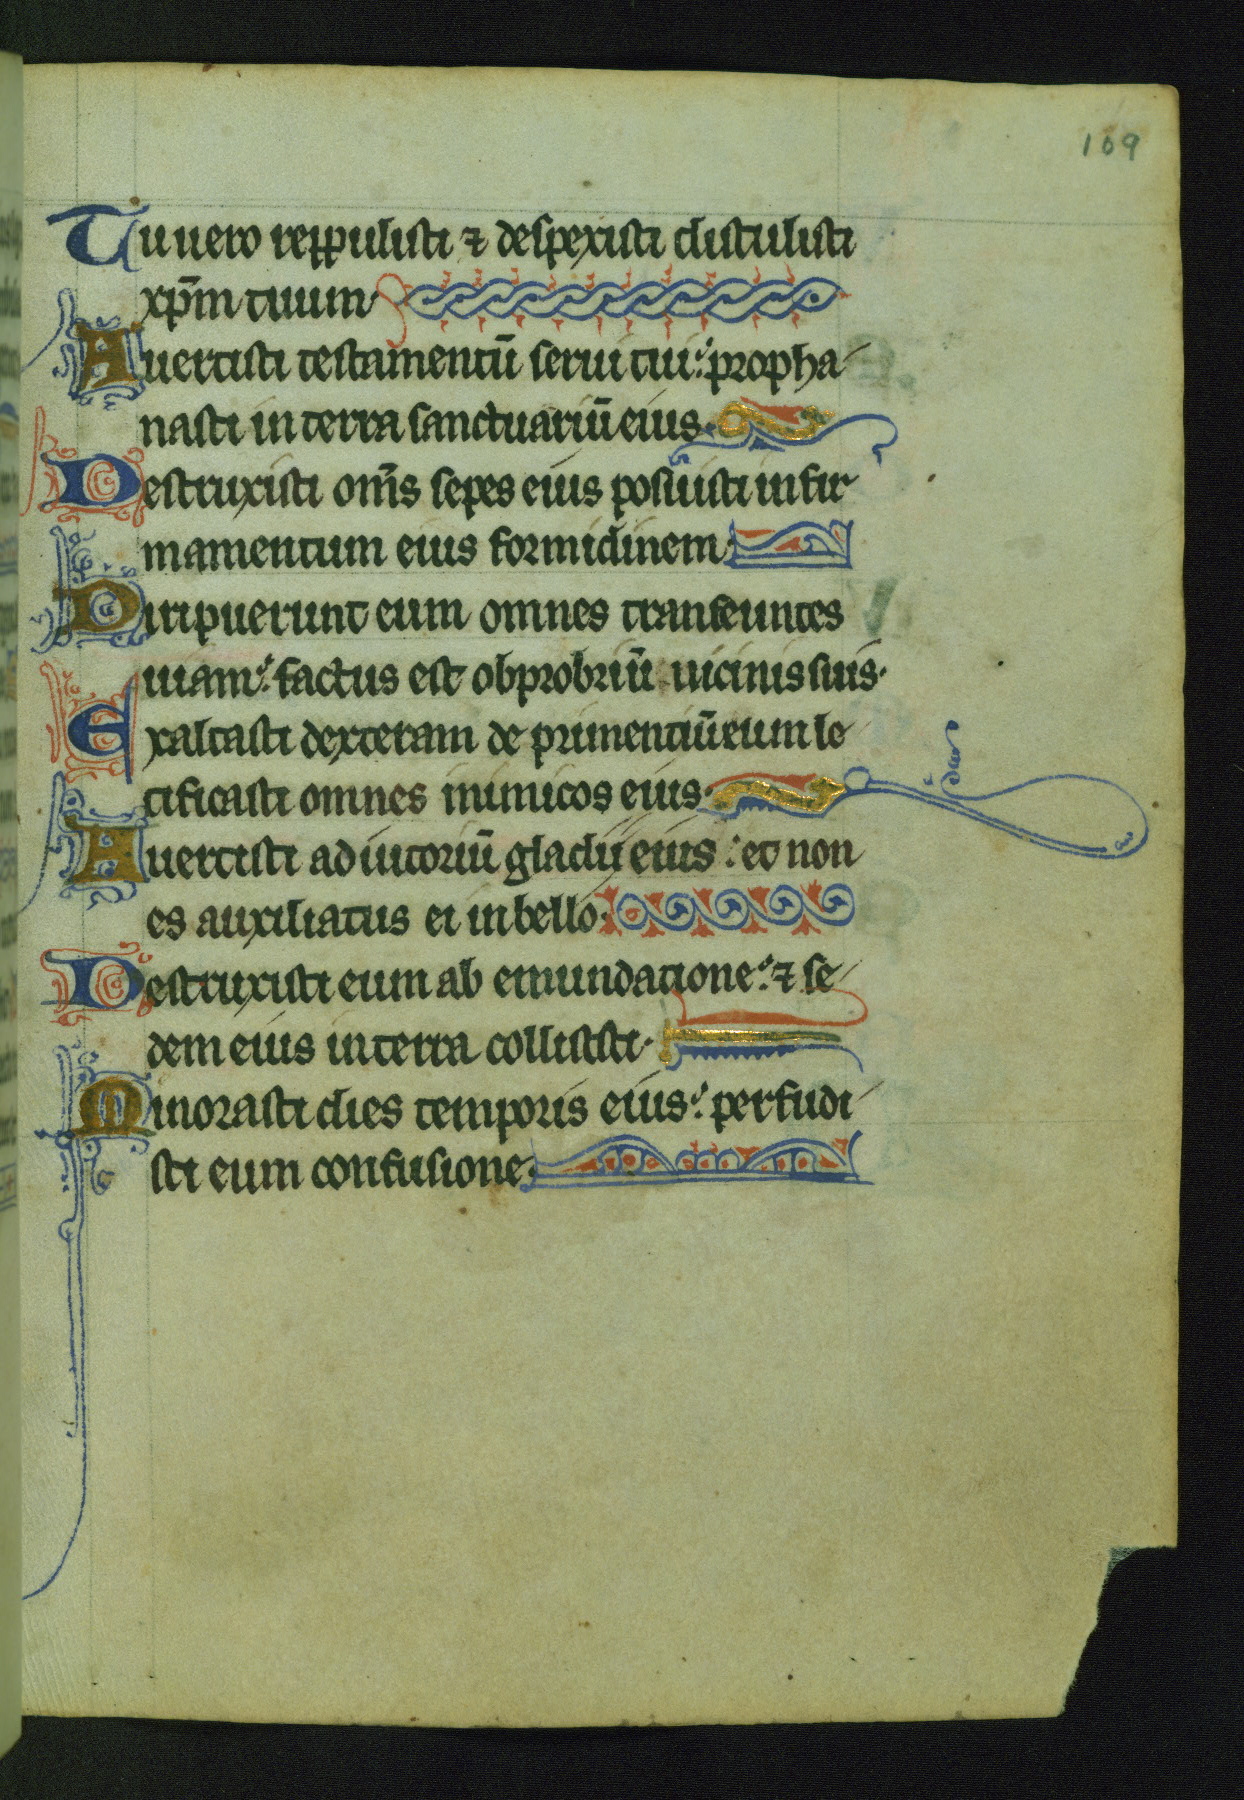 109
Tu uero reppulisti ⁊ despexisti distulisti
xp̄m tuum
Auertisti testamentū serui tui: propha
nasti in terra sanctuariū eius.
Destruxisti om̄s sepes eius posuisti in fir
mamentum eius formidinem.
Diripuerunt eum omnes transeuntes
uiam: factus est obprobriū uicinis suis.
Exaltasti dexteram de primentiū eum le
tificasti omnes inimicos eius.
Auertisti ad iutoriū gladij eius: et non
es auxiliatus ei in bello.
Destruxisti eum ab emundatione: ⁊ se
dem eius in terra collisisti.
Minorasti dies temporis eius: perfudi
sti eum confusione.